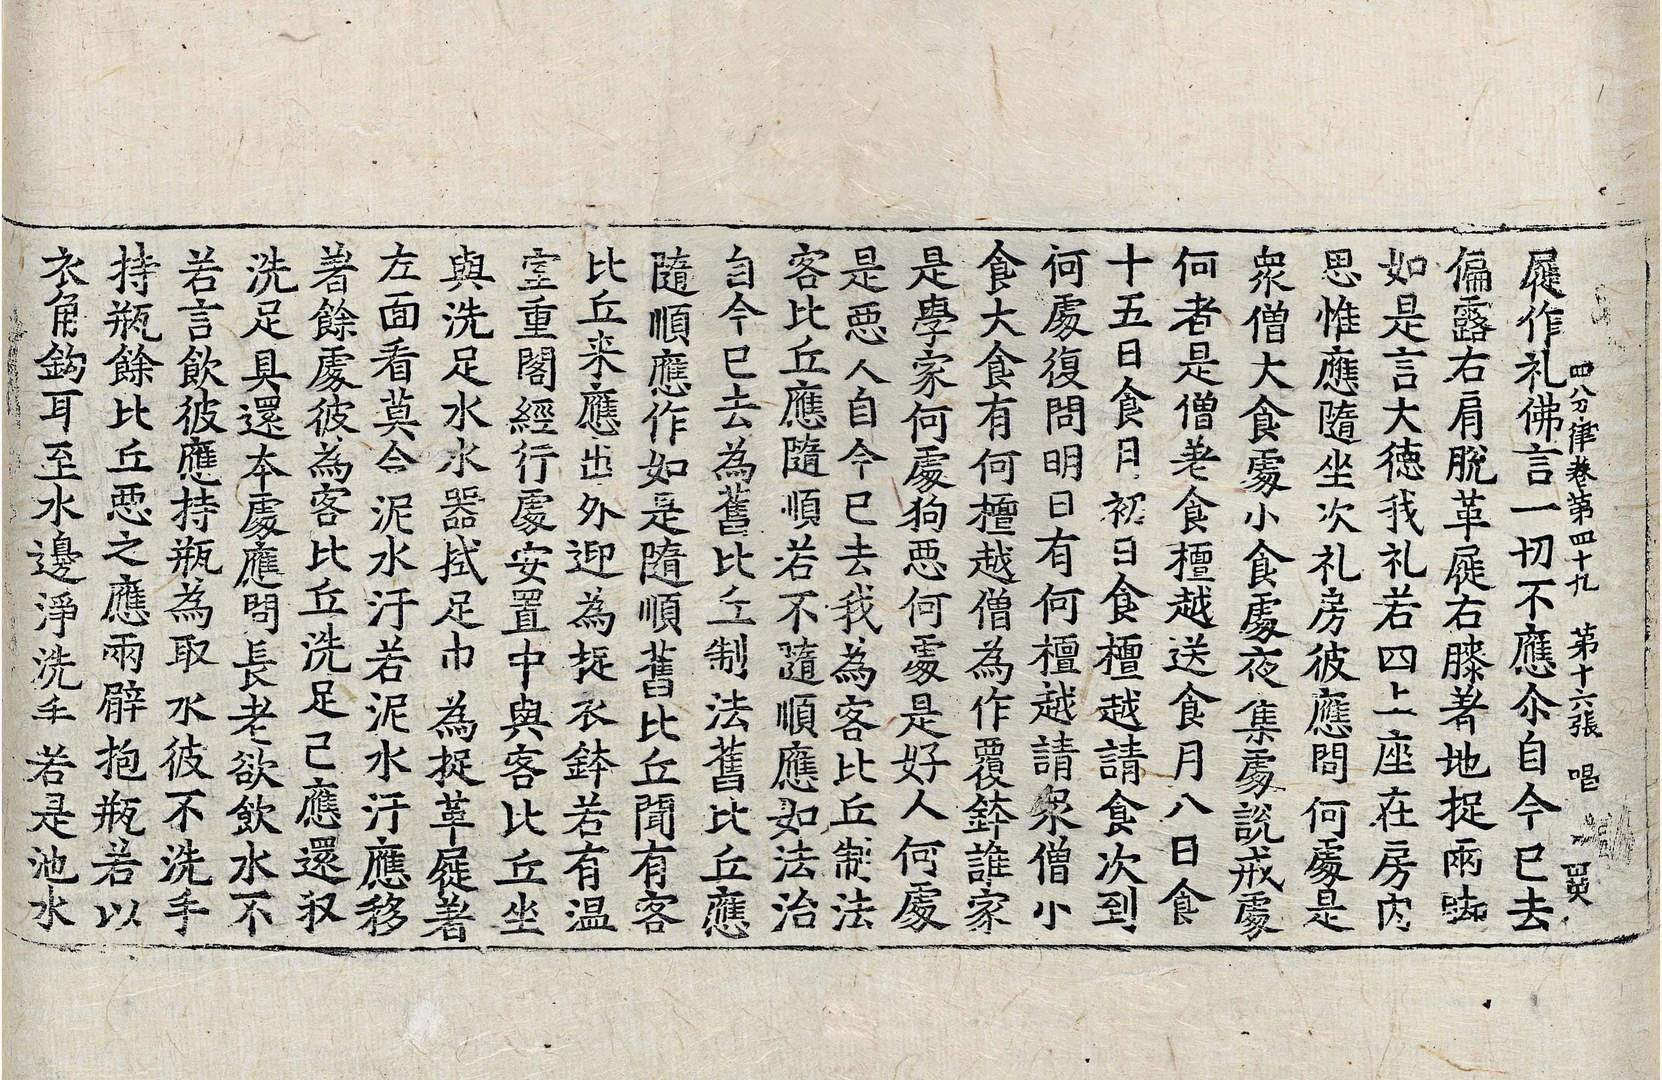 四分律卷第四十九　第十六張　唱
屣作礼佛言一切不應尒自今已去
偏露右肩脫革屣右膝著地捉兩腳
如是言大德我礼若四上座在房內
思惟應隨坐次礼房彼應問何處是
衆僧大食處小食處夜集處說戒處
何者是僧差食檀越送食月八日食
十五日食月初日食檀越請食次到
何處復問明日有何檀越請衆僧小
食大食有何檀越僧為作覆鉢誰家
是學家何處狗惡何處是好人何處
是惡人自今已去我為客比丘制法
客比丘應隨順若不隨順應如法治
自今已去為舊比丘制法舊比丘應
隨順應作如是隨順舊比丘聞有客
比丘来應出外迎為捉衣鉢若有温
室重閣經行處安置中與客比丘坐
與洗足水水器拭足巾為捉革屣著
左面看莫令泥水汙若泥水汙應移
著餘處彼為客比丘洗足已應還収
洗足具還本處應問長老欲飲水不
若言飲彼應持瓶為取水彼不洗手
持瓶餘比丘惡之應兩臂抱瓶若以
衣角鈎耳至水邊淨洗手若是池水